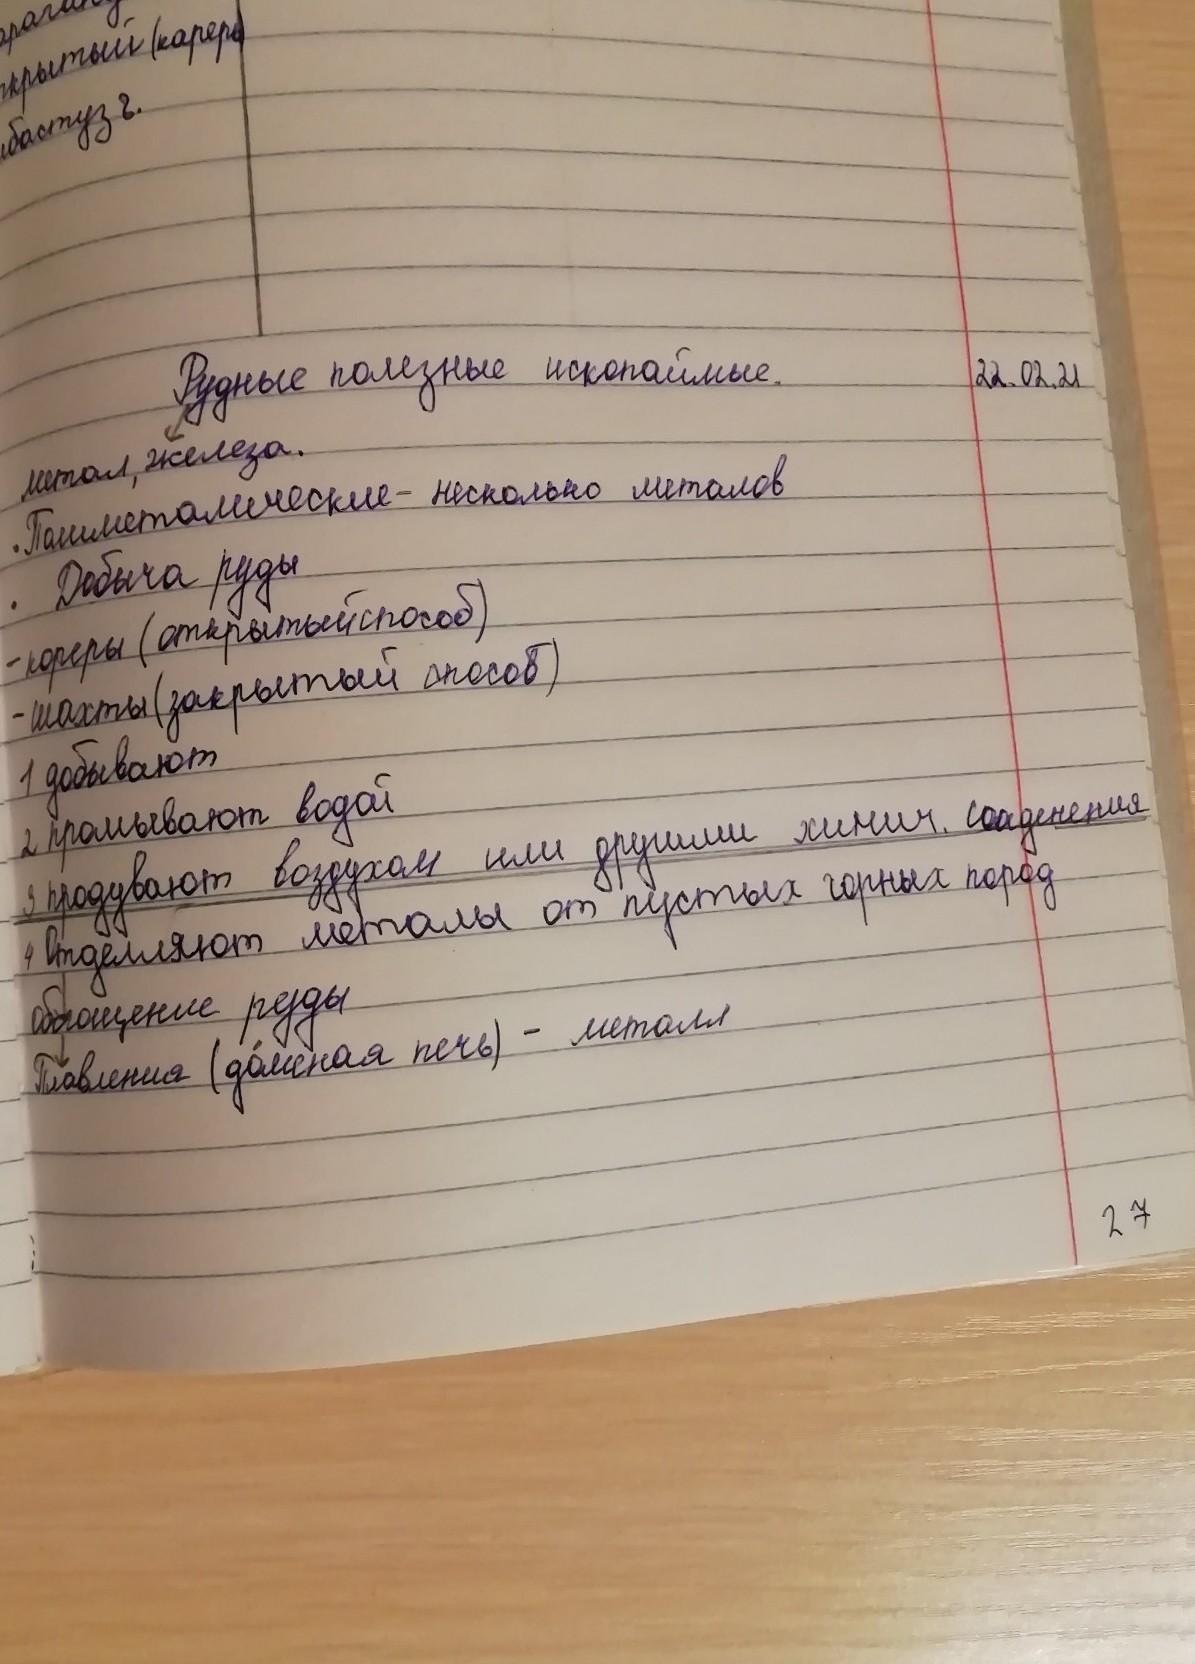 крытый (карера
бастуз г.
Рудные полезные ископаймые. 22.02.21
метал, железа.
• Полиметалические - несколько металов
• Добыча руды
- кореры (открытый способ)
- шахты (закрытый способ)
1 добывают
2 промывают водой
3 продувают воздухом или другими химич. соаденения
4 Отделляют металы от пустых горных пород
обогощение руды
Плавления (до́меная печь) - металл
27